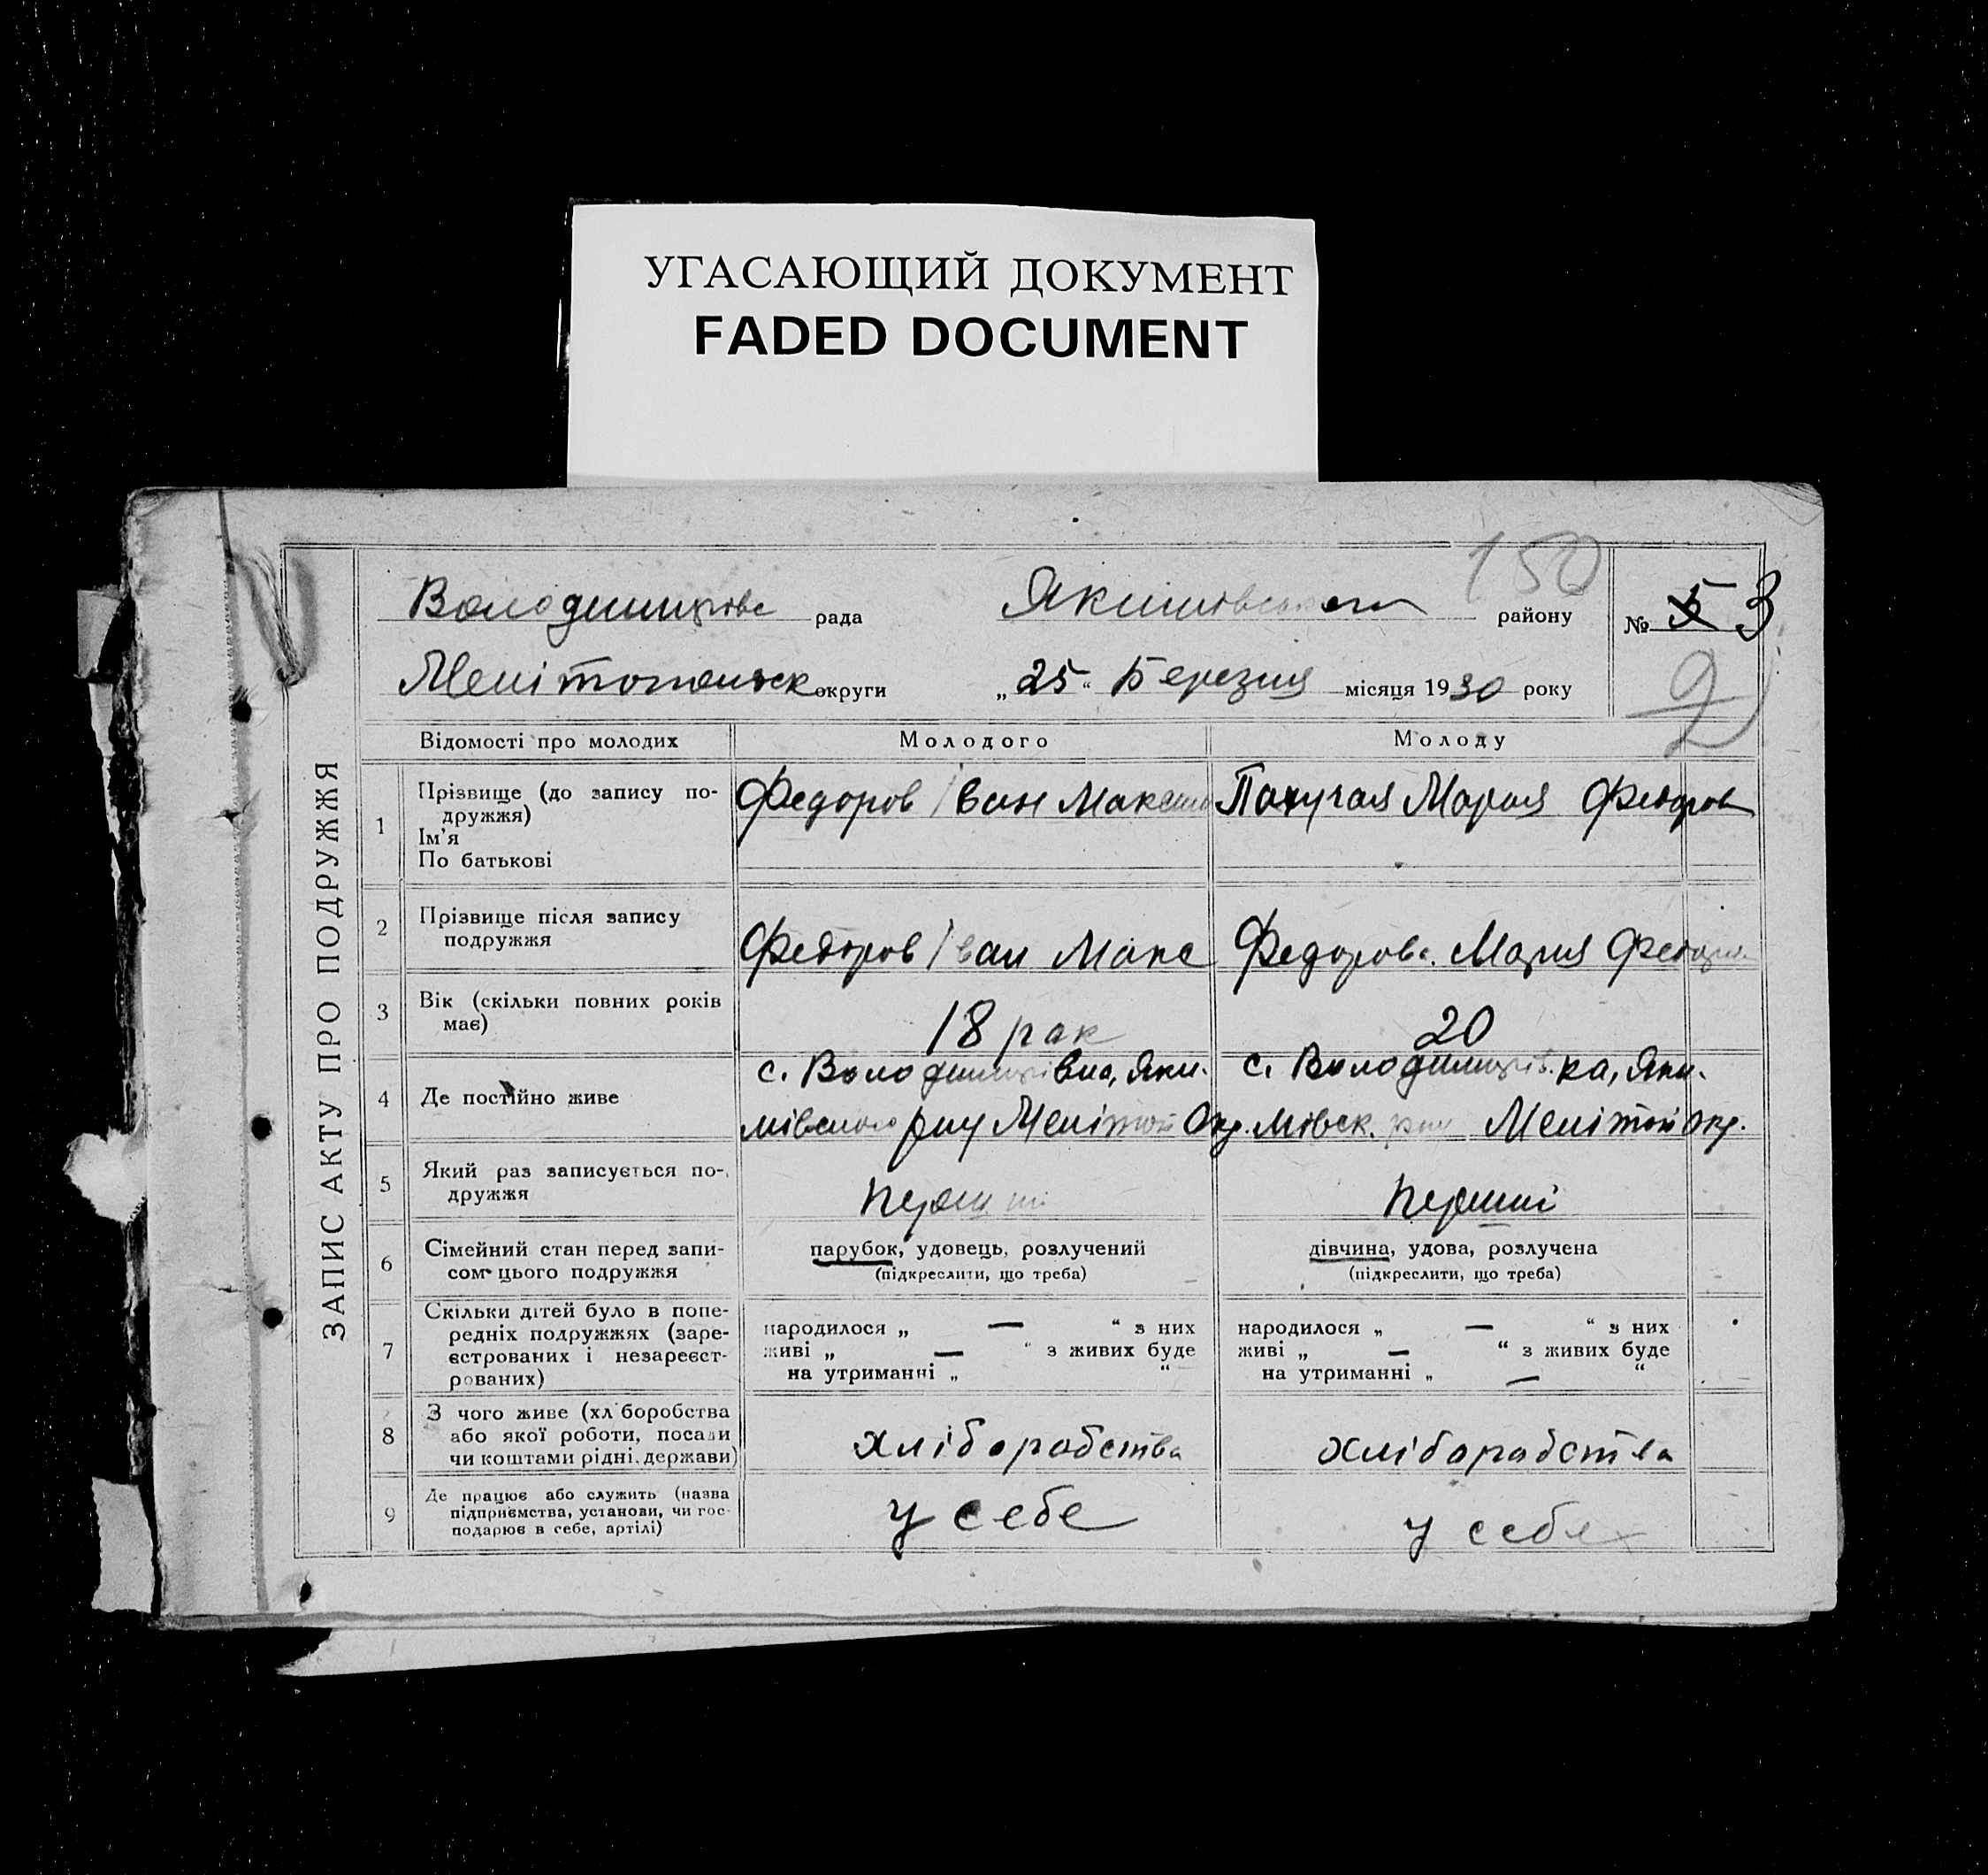 УГАСАЮЩИЙ ДОКУМЕНТ
FADED DOCUMENT
150
рада Якимівського району № 5 3
Мелітопольск округи „25“ Березня місяця 1930 року
2
ЗАПИС АКТУ ПРО ПОДРУЖЖЯ
Відомості про молодих Молодого Молоду
1 Прізвище (до запису по-
дружжя)
Ім'я
По батькові
Федоров Іван Максим Мария Федоров
2 Прізвище після запису
подружжя
Федоров Іван Макс Федорова Мария
3 Вік (скільки повних років
має)
18 рак 20
4 Де постійно живе
с. Яки- с. Володимирівка, Яки-
мівського рну Меліт Окр. мівск. рну Меліт Окр.
5 Який раз записується по-
дружжя
перший перший
6 Сімейний стан перед запи-
сом цього подружжя
парубок, удовець, розлучений дівчина, удова, розлучена
(підкреслити, що треба) (підкреслити, що треба)
7 Скільки дітей було в попе-
редніх подружжях (заре-
єстрованих і незареєст-
рованих)
народилося „ — “ з них народилося „ — “ з них
живі „ — “ з живих буде живі „ — “ з живих буде
на утриманні „ “ на утриманні „ — “
8 З чого живе (хліборобства
або якої роботи, посади
чи коштами рідні, держави)
хліборобства хліборабства
9 Де працює або служить (назва
підприємства, установи, чи гос-
подарює в себе, артілі)
у себе у себе